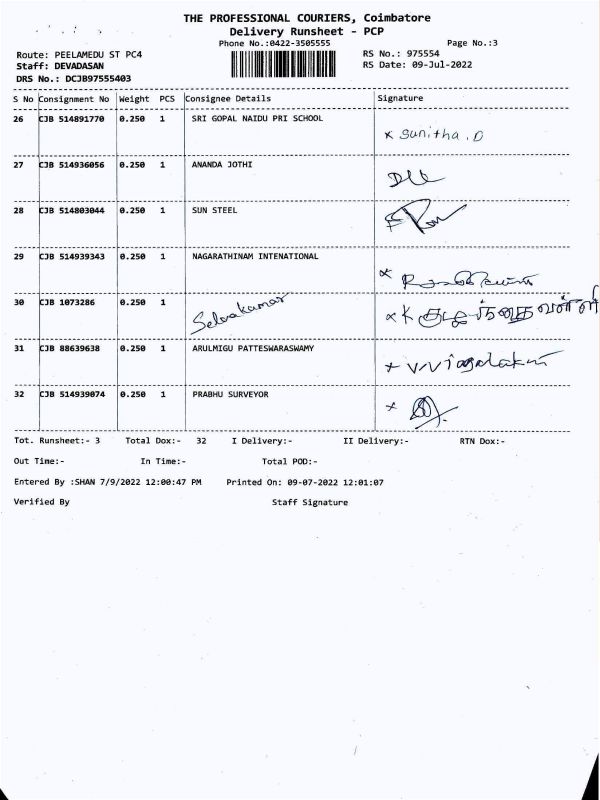 THE PROFESSIONAL COURIERS, Coimbatore
Delivery Runsheet - PCP
Phone No.:0422-3505555
Page No.:3
Route: PEELAMEDU ST PC4
RS No.: 975554
Staff: DEVADASAN
RS Date: 09-Jul-2022
DRS No.: DCJB97555403
S No Consignment No Weight PCS Consignee Details Signature
26 CJB 514891770 0.250 1 SRI GOPAL NAIDU PRI SCHOOL x Sunitha.D
27 CJB 514936056 0.250 1 ANANDA JOTHI
28 CJB 514803044 0.250 1 SUN STEEL
29 CJB 514939343 0.250 1 NAGARATHINAM INTENATIONAL
30 CJB 1073286 0.250 1 Selvakumar
31 CJB 88639638 0.250 1 ARULMIGU PATTESWARASWAMY
32 CJB 514939074 0.250 1 PRABHU SURVEYOR
Tot. Runsheet:- 3 Total Dox:- 32 I Delivery:- II Delivery:- RTN Dox:-
Out Time:- In Time:- Total POD:-
Entered By :SHAN 7/9/2022 12:00:47 PM Printed On: 09-07-2022 12:01:07
Verified By Staff Signature